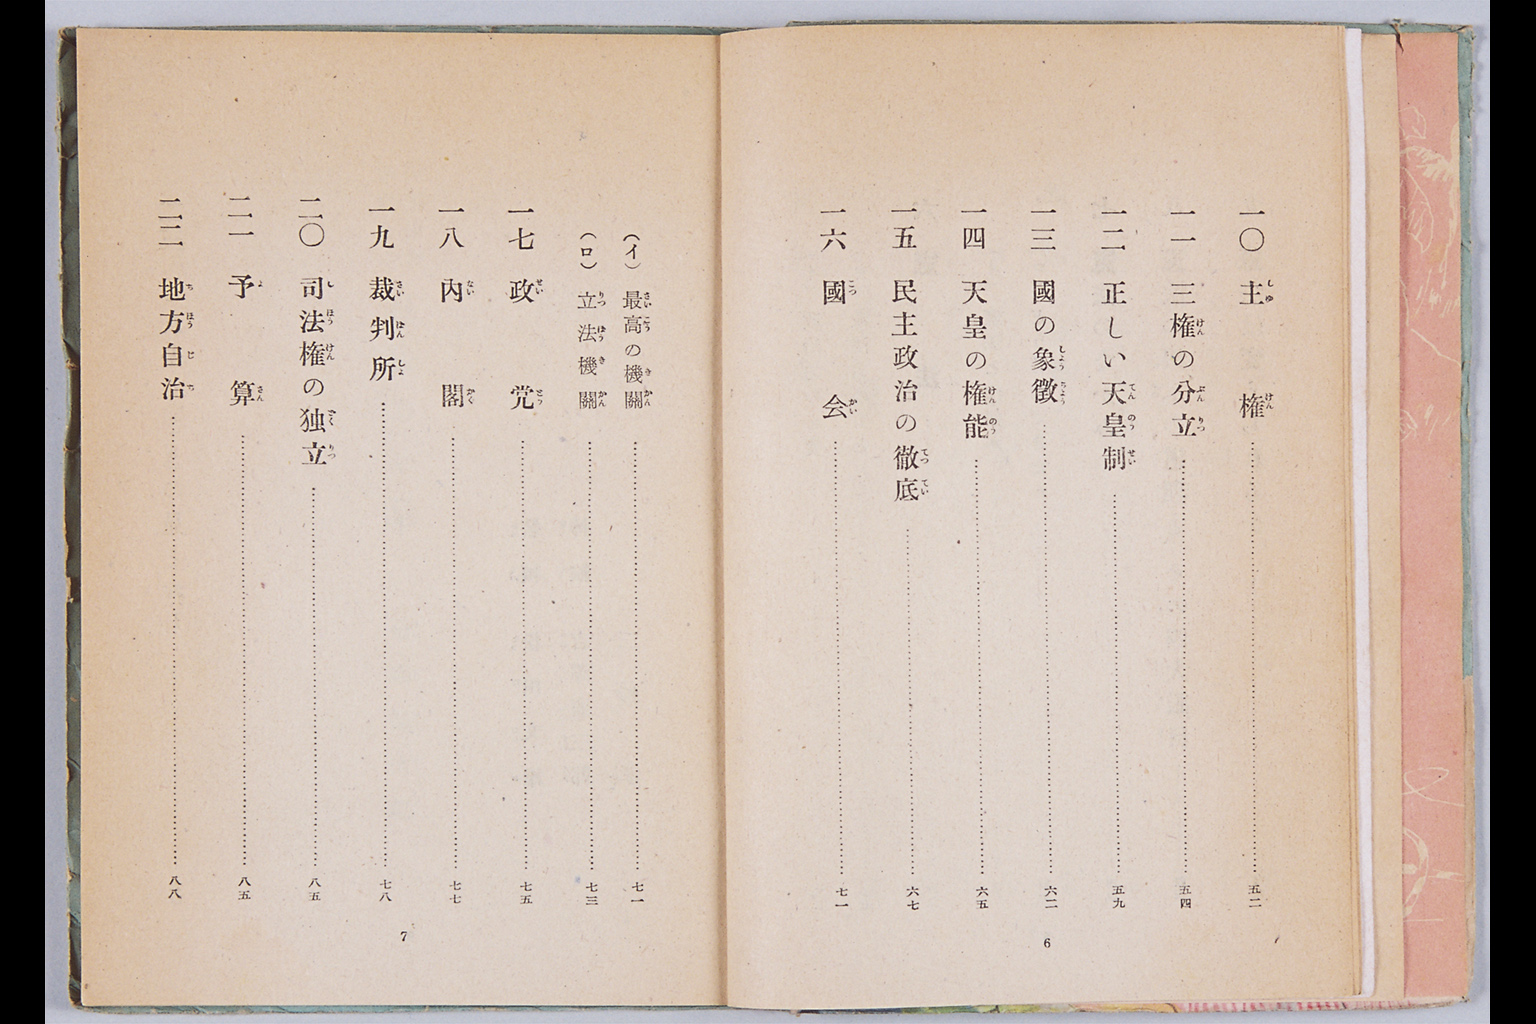 一〇 主権 五二
一一 三権の分立 五四
一二 正しい天皇制 五九
一三 國の象徴 六二
一四 天皇の権能 六五
一五 民主政治の徹底 六七
一六 國会 七一
6
(イ) 最高の機關 七一
(ロ) 立法機關 七三
一七 政党 七五
一八 内閣 七七
一九 裁判所 七八
二〇 司法権の独立 八五
二一 予算 八五
二二 地方自治 八八
7